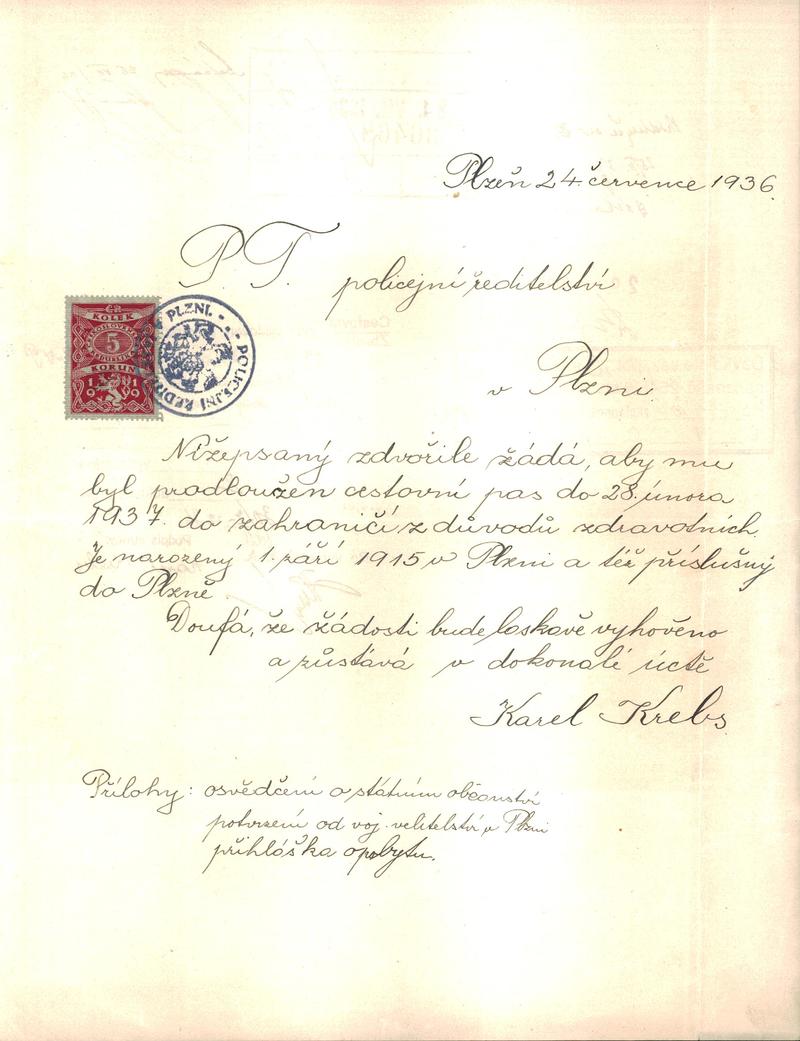 Plzeň 24. července 1936.
P. T. policejní ředitelství
ČR
KOLEK
ČESKOSLOVENSKÁ
5
REPUBLIKA
KORUN
1919
POLICEJNÍ ŘEDIT V PLZNI.
v Plzni.
Nížepsaný zdvořile žádá, aby mu
byl prodloužen cestovní pas do 28. února
1937. do zahraničí z důvodů zdravotních.
Je narozený 1. září 1915 v Plzni a též příslušný
do Plzně.
Doufá, že žádosti bude laskavě vyhověno
a zůstává v dokonalé úctě
Karel Krebs.
Přílohy: osvědčení o státním občanství
potvrzení od voj. velitelství v Plzni
přihlóška o pobytu.